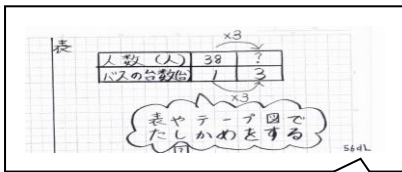 表
×3
人数(人) 38 ?
バスの台数(台) 1 3
×3
表やテープ図で
たしかめをする